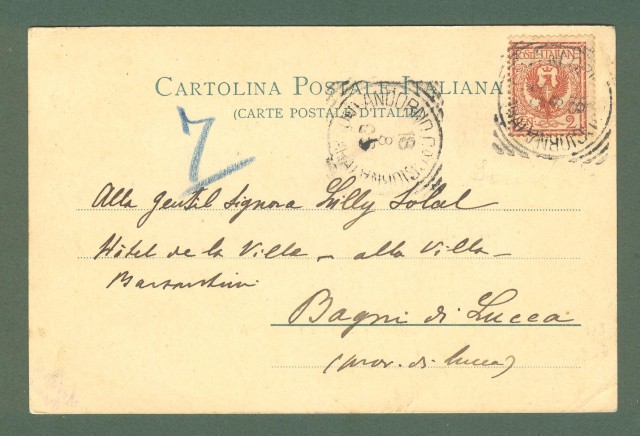 CARTOLINA POSTALE ITALIANA
(CARTE POSTALE D'ITALIE)
POSTE ITALIANE
2
18
8
7
Alla gentil Signora Lilly Solal
Hôtel de la Ville – alla Villa –
Bagni di Lucca
(prov. di Lucca)